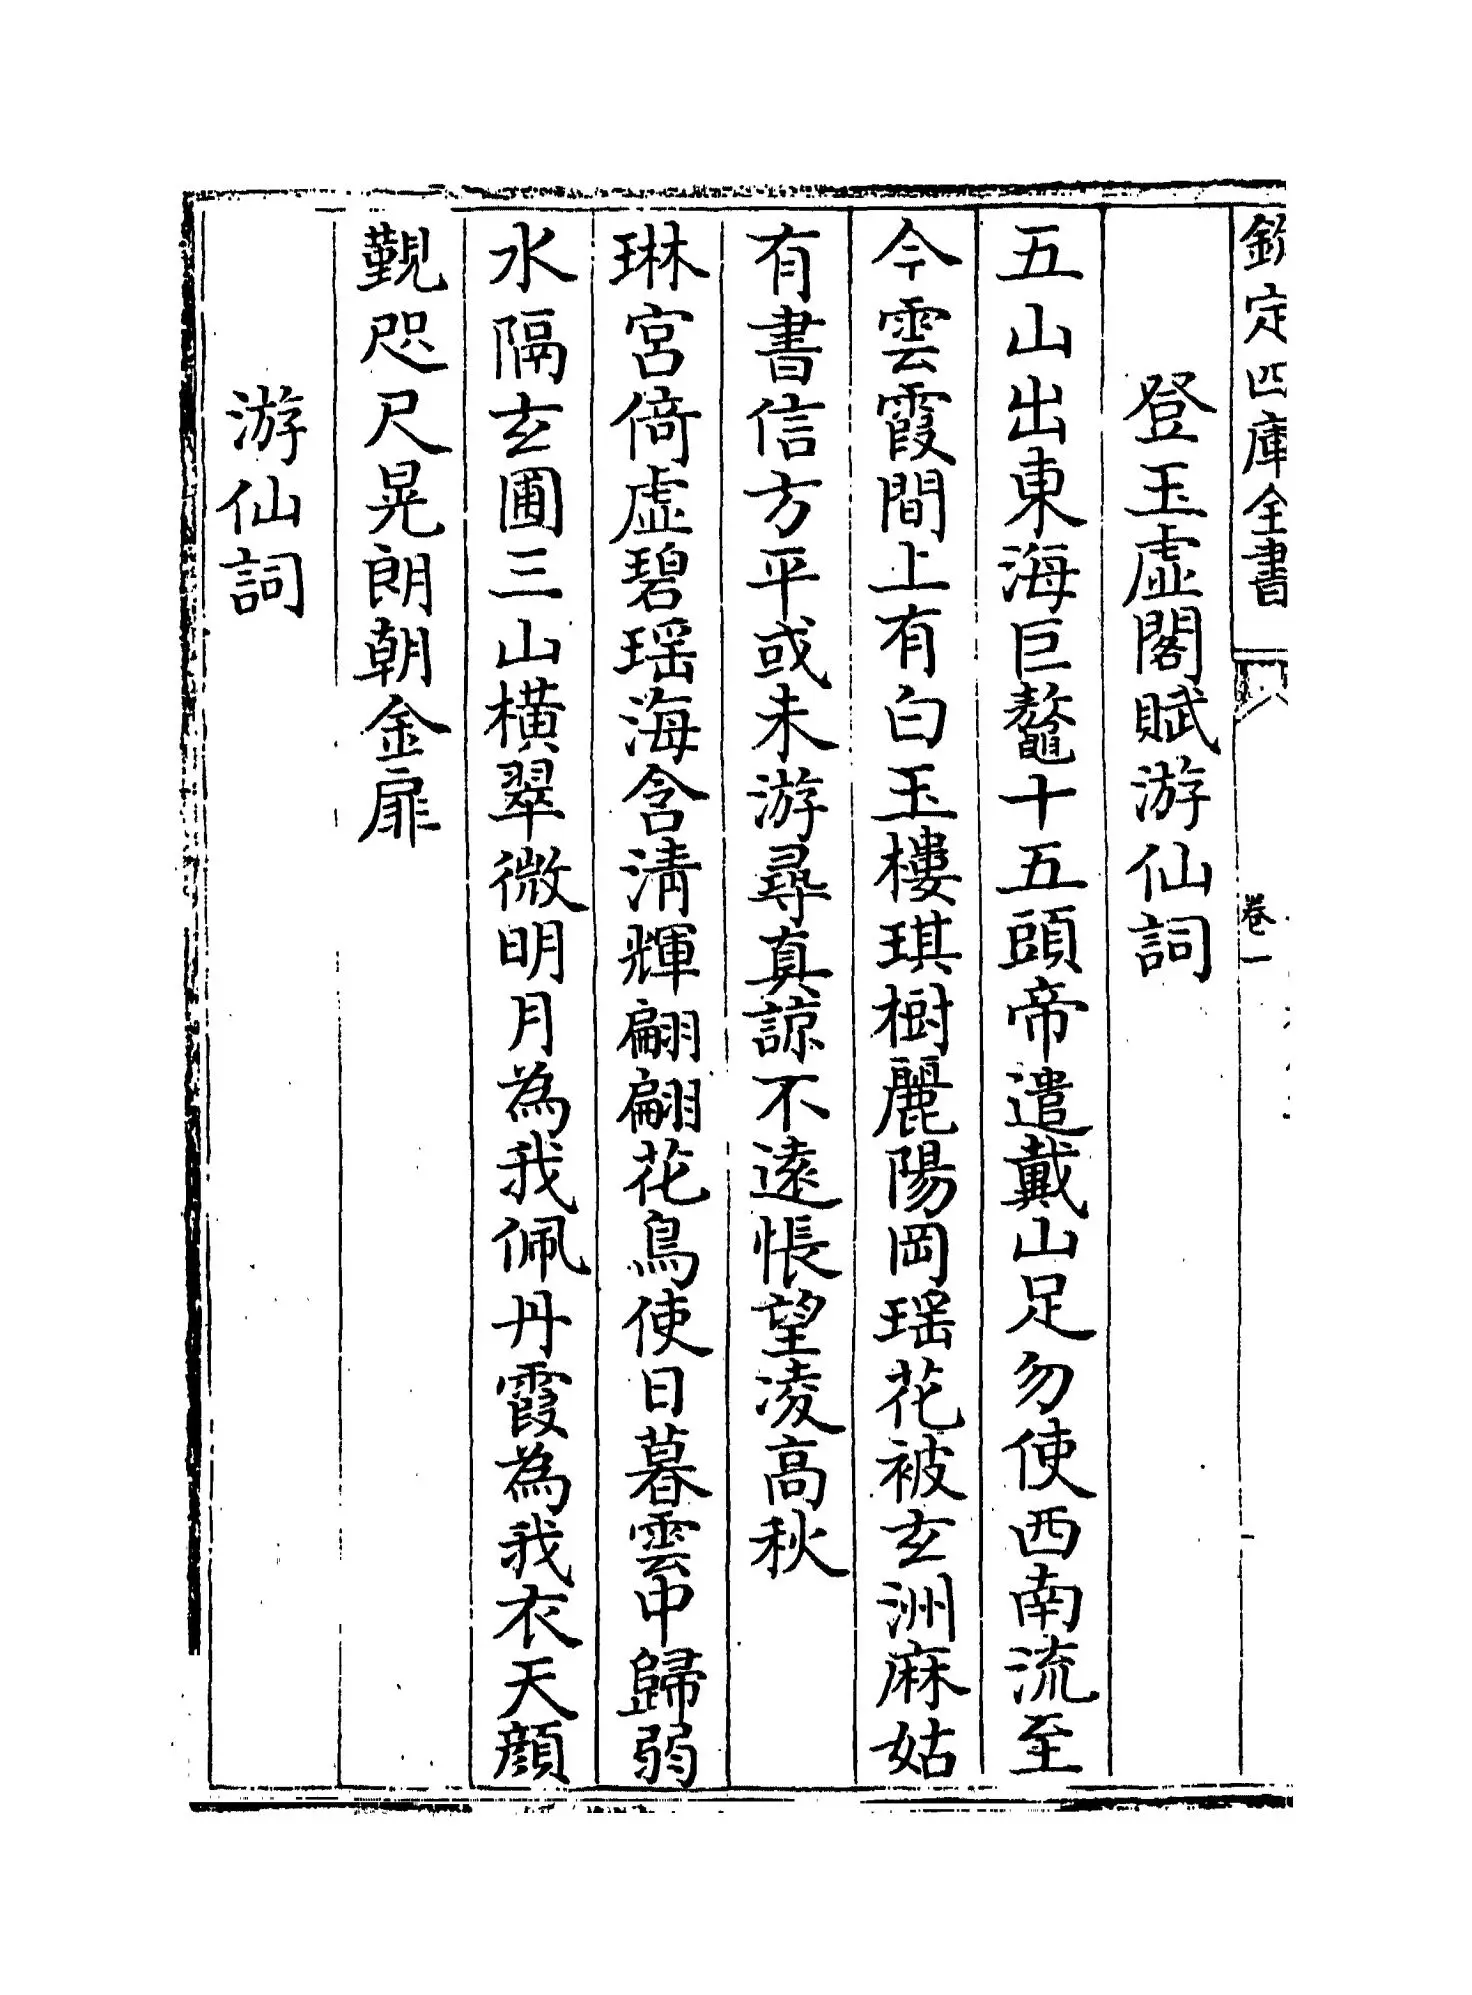 欽定四庫全書
卷一
登玉虛閣賦游仙詞
五山出東海巨鼇十五頭帝遣戴山足勿使西南流至
今雲霞間上有白玉樓琪樹麗陽岡瑶花被玄洲麻姑
有書信方平或未游尋真諒不遠悵望凌高秋
琳宮倚虛碧瑶海含清輝翩翩花鳥使日暮雲中歸弱
水隔玄圃三山橫翠微明月為我佩丹霞為我衣天顔
覲咫尺晃朗朝金扉
游仙詞